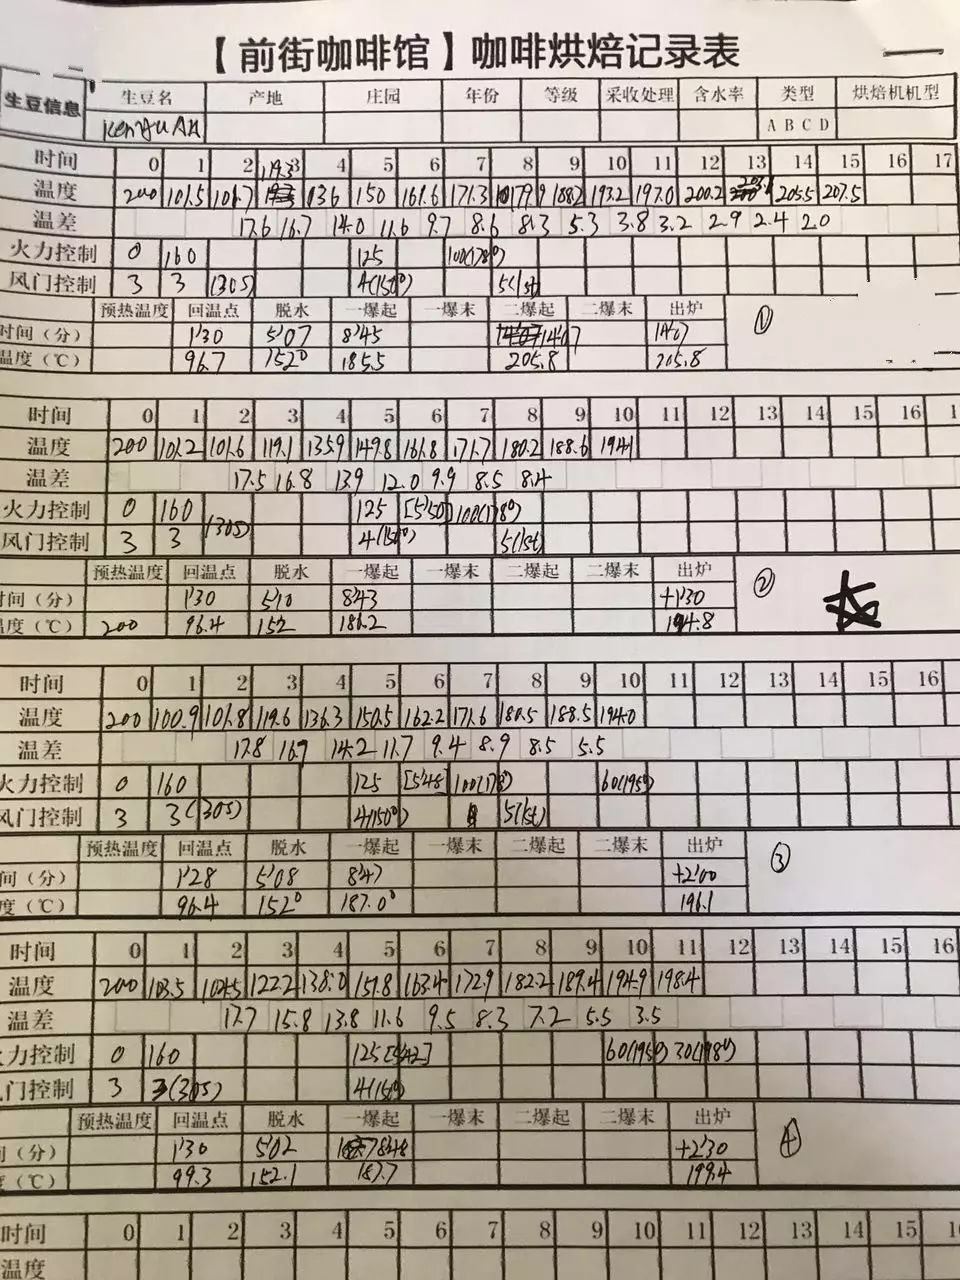 【前街咖啡馆】咖啡烘焙记录表
生豆信息 生豆名 产地 庄园 年份 等级 采收处理 含水率 类型 烘焙机机型
A B C D
时间 0 1 2 3 4 5 6 7 8 9 10 11 12 13 14 15 16 17
温度 200 101.5 101.7 119.3 136 150 161.6 171.3 179.9 188.2 193.2 197.0 200.2 203. 205.5 207.5
温差 17.6 16.7 14.0 11.6 9.7 8.6 8.3 5.3 3.8 3.2 2.9 2.4 2.0
火力控制 0 160 125 100(178°)
风门控制 3 3 (30S) 4(150°) 5(1st)
预热温度 回温点 脱水 一爆起 一爆末 二爆起 二爆末 出炉 ①
时间(分) 1'30 5'07 8'45 14'07 14'07
温度(℃) 96.7 152° 185.5 205.8 205.8
时间 0 1 2 3 4 5 6 7 8 9 10 11 12 13 14 15 16 1
温度 200 101.2 101.6 119.1 135.9 149.8 161.8 171.7 180.2 188.6 194.1
温差 17.5 16.8 13.9 12.0 9.9 8.5 8.4
火力控制 0 160 125 [5'50] 100(178°)
风门控制 3 3 (30S) 4(150°) 5(1st)
预热温度 回温点 脱水 一爆起 一爆末 二爆起 二爆末 出炉 ②
时间(分) 1'30 5'10 8'43 +1'30
温度(℃) 200 96.4 152 186.2 194.8
时间 0 1 2 3 4 5 6 7 8 9 10 11 12 13 14 15 16
温度 200 100.9 101.8 119.6 136.3 150.5 162.2 171.6 180.5 188.5 194.0
温差 17.8 16.7 14.2 11.7 9.4 8.9 8.5 5.5
火力控制 0 160 125 [5'48] 100(178°) 60(195°)
风门控制 3 3 (30S) 4(150°) 5(1st)
预热温度 回温点 脱水 一爆起 一爆末 二爆起 二爆末 出炉 ③
间(分) 1'28 5'08 8'47 +2'00
度(℃) 96.4 152° 187.0° 196.1
时间 0 1 2 3 4 5 6 7 8 9 10 11 12 13 14 15 16
温度 200 103.5 104.5 122.2 138.0 151.8 163.4 172.9 182.2 189.4 194.9 198.4
温差 17.7 15.8 13.8 11.6 9.5 8.3 7.2 5.5 3.5
火力控制 0 160 125 [5'42] 60(195°) 30(198°)
风门控制 3 3 (30S) 4(150°)
预热温度 回温点 脱水 一爆起 一爆末 二爆起 二爆末 出炉 ④
(分) 1'30 5'02 8'48 +2'30
(℃) 99.3 152.1 187.7 199.4
时间 0 1 2 3 4 5 6 7 8 9 10 11 12 13 14 15 16
温度